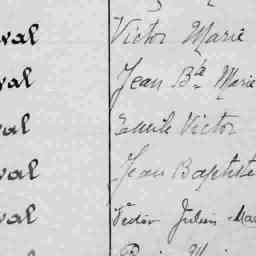 val Victor Marie
val Jean Bte Marie
val Emile Victor
val Jean Baptiste
val Victor Julien